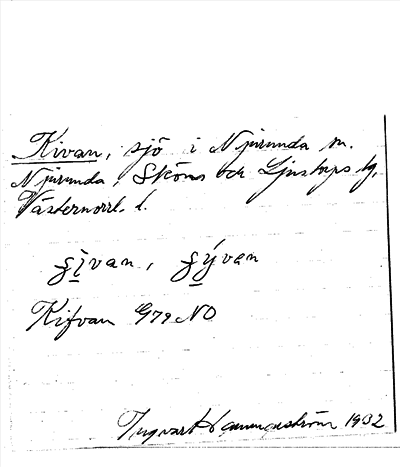 Kivan, sjö i Njurunda sn.
Njurunda, Sköns och Ljustorps tg,
Västernorrl. l.
Kifvan G79 NO
Ingvar Hammarström 1932